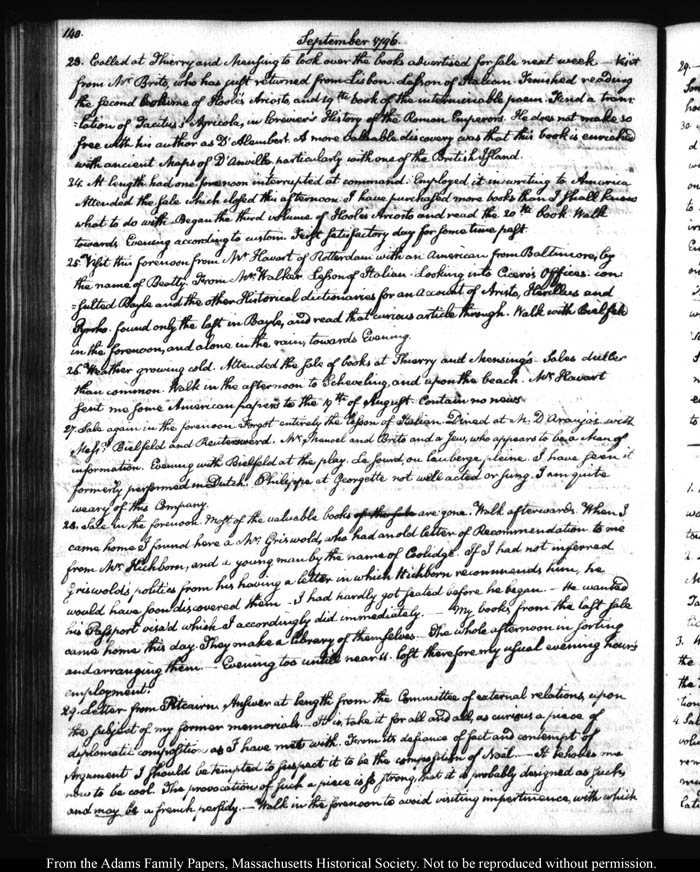 140.
September 1796.
23. Called at Thierry and Mensing to look over the books advertised for sale next week — Visit
from Mr Brito, who has just returned from Lisbon. Lesson of Italian. Finished reading
the second volume of Hoole's Ariosto, and 19th book of the interminable poem. Find a trans-
lation of Tacitus's Agricola, in Crevier's History of the Roman Emperors. He does not make so
free with his author as D'Alembert. A more valuable discovery was that this book is enriched
with ancient Maps of D'Anville particularly with one of the British Island.
24. At length had one forenoon interrupted at command. Employed it in writing to America
Attended the sale which closed this afternoon. I have purchased more books than I shall know
what to do with. Began the third volume of Hoole's Ariosto and read the 20th book. Walk
towards Evening according to custom. First satisfactory day for some time past.
25. Visit this forenoon from Mr Havart of Rotterdam with an American from Baltimore, by
the name of Beatty. From Mr Walker. Lesson of Italian. Looking into Cicero's Offices: con
-sulted Bayle and the other Historical dictionaries for an account of Aristo, Herillus and
Pyrrho. found only the last in Bayle, and read that curious article through. Walk with Bielfeld
in the forenoon, and alone in the rain, towards Evening.
26. Weather growing cold. Attended the sale of books at Thierry and Mensing's. Sales duller
than common. Walk in the afternoon to Scheveling, and upon the beach. Mr Havart
sent me some American papers to the 19th of August. Contain no news.
27. Sale again in the forenoon. Forgot entirely the Lesson of Italian. Dined at M. D'Araujo's with
Messrs Bielfeld and Reutersward. Mr Brito and a Jew, who appears to be a Man of
information. Evening with Bielfeld at the play. Le Sourd, ou l'auberge pleine. I have seen it
formerly performed in Dutch. Philippe et Georgette not well acted or sung. I am quite
weary of this Company.
28. Sale in the forenoon. Most of the valuable books of the sale are gone. Walk afterwards. When I
came home I found here a Mr Griswold, who had an old letter of Recommendation to me
from Mr Hichborn, and a young man by the name of Coolidge. If I had not inferred
Griswold's politics from his having a letter in which Hichborn recommends him, he
would have soon discovered them — I had hardly got seated before he began. — He wanted
his Passport visa'd which I accordingly did immediately. — My books from the last sale
came home this day. They make a library of themselves. The whole afternoon in sorting
and arranging them. — Evening too untill near 11. lost therefore my usual evening hour's
employment.
29. Letter from Pitcairn. Answer at length from the Committee of external relations, upon
the subject of my former memorials. — It is, take it for all and all, as curious a piece of
diplomatic composition as I have met with. From its defiance of fact and contempt of
Argument I should be tempted to suspect it to be the composition of Noël. — It behoves me
now to be cool. The provocation of such a piece is so strong, that it is probably designed as such,
and may be a french perfidy. — Walk in the forenoon to avoid visiting impertinence, with which
From the Adams Family Papers, Massachusetts Historical Society. Not to be reproduced without permission.